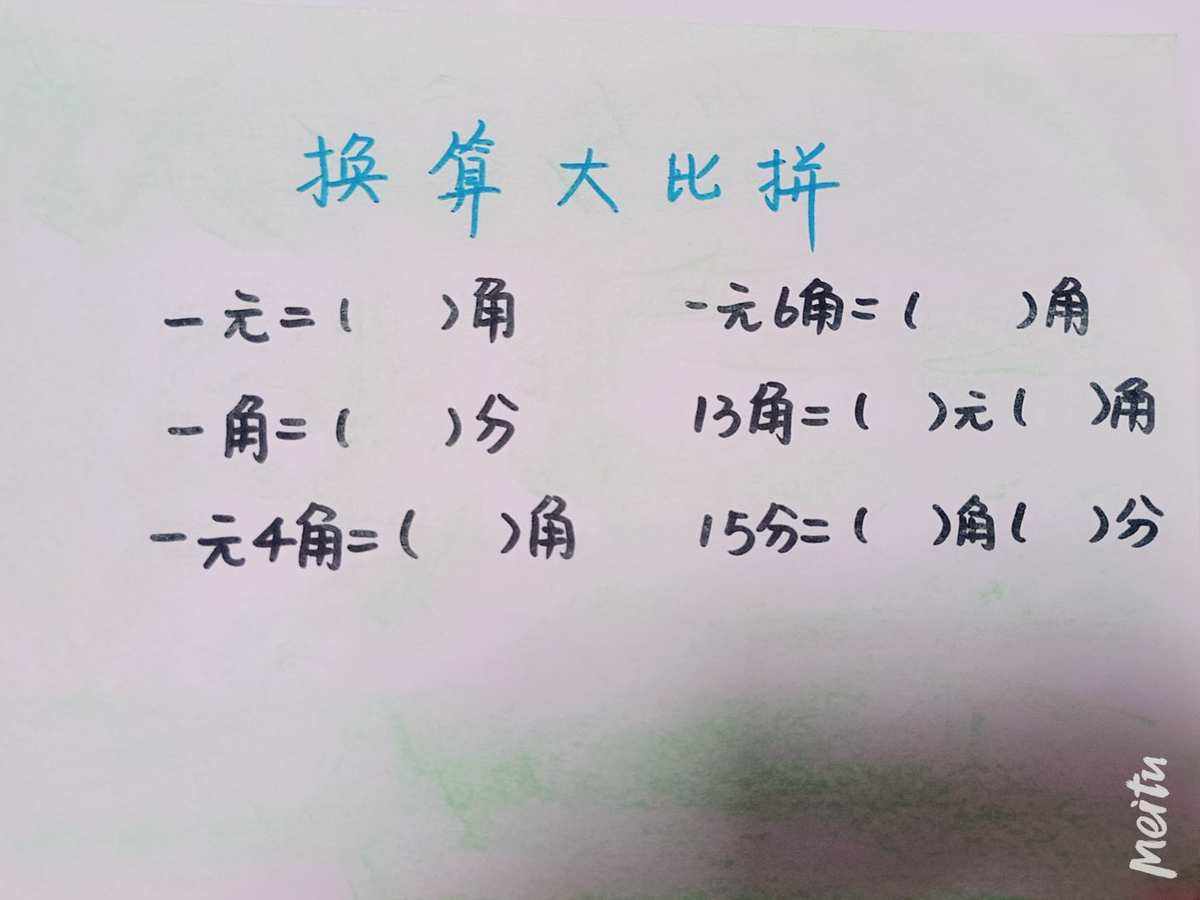 换算大比拼
一元=( )角 一元6角=( )角
一角=( )分 13角=( )元( )角
一元4角=( )角 15分=( )角( )分
meitu